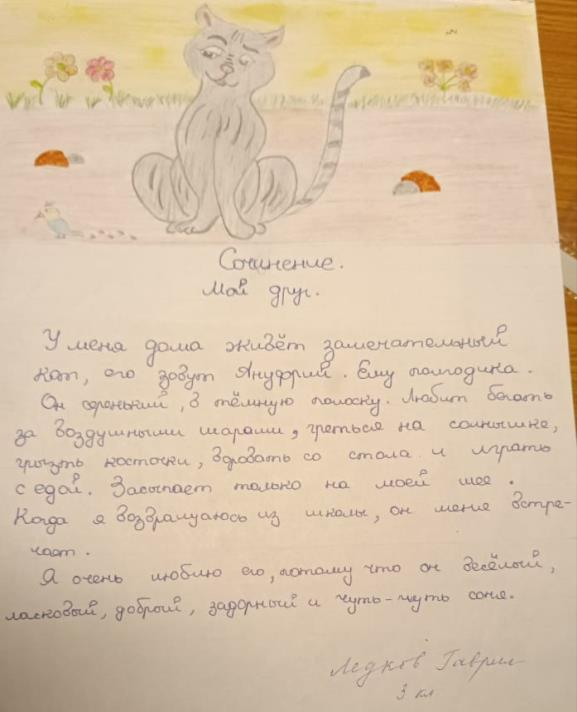 Сочинение.
Мой друг.
У меня дома живёт замечательный
кот, его зовут Януфрий. Ему полгодика.
Он серенький, в тёмную полоску. Любит бегать
за воздушными шарами, греться на солнышке,
грызть косточки, воровать со стола и играть
с едой. Засыпает только на моей шее.
Когда я возвращаюсь из школы, он меня встре-
чает.
Я очень люблю его, потому что он весёлый,
ласковый, добрый, задорный и чуть-чуть соня.
Ледков Гаврил
3 кл